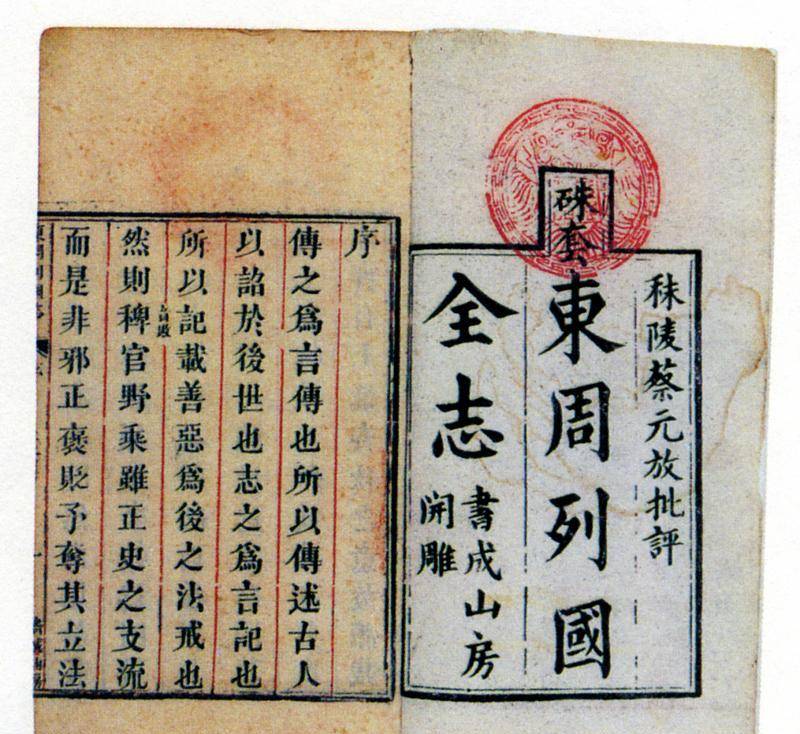 硃套
秣陵蔡元放批評
東周列國
全志
書成山房
開雕
序
傳之爲言傳也所以傳述古人
以詔於後世也志之爲言記也
所以記載善惡爲後之法戒也
然則稗官野乘雖正史之支流
而是非邪正褒貶予奪其立法